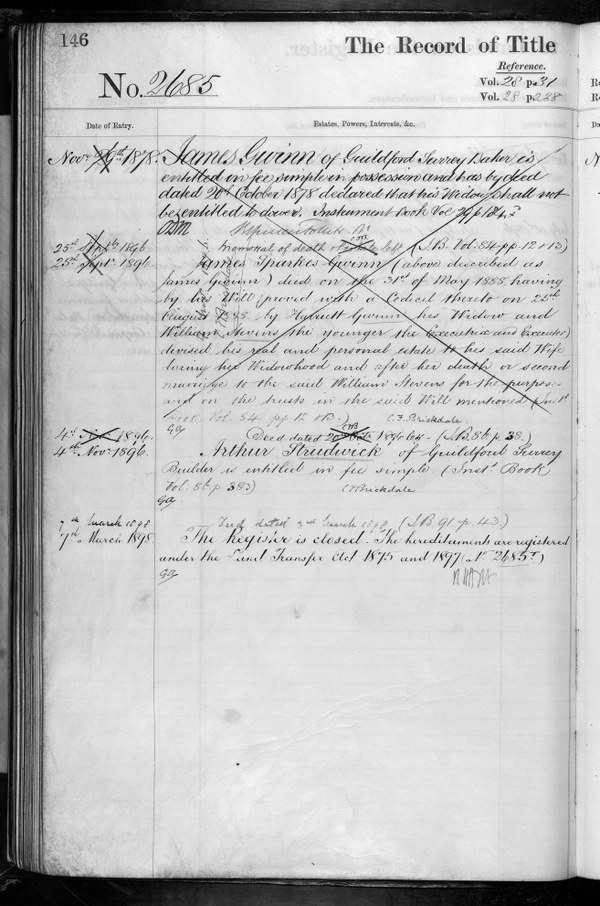 146
The Record of Title
Reference.
No. 2685
Vol. 28 p. 31
Vol. 28 p. 228
Date of Entry.
Estates, Powers, Interests, &c.
Novr 29th 1878. James Gwinn of Guildford Surrey Baker is
entitled in fee simple in possession and has by deed
dated 20th October 1878 declared that his Widow shall not
be entitled to dower. Instrument Book Vol
25th Septr 1896 Memorial of death left (I.B. Vol. 84 pp. 12 & 13)
25th Septr 1896. James Sparkes Gwinn (above described as
James Gwinn) died on the 31st of May 1888 having
by his Will proved with a Codicil thereto on 25th
August 1888 by Harriett Gwinn his Widow and
William Stevens the younger the Executrix and Executor
devised his real and personal estate to his said Wife
during her Widowhood and after her death or second
marriage to the said William Stevens for the purposes
and on the trusts in the said Will mentioned (Inst.
book Vol. 84 pp 12 & 13.) C.F. Brickdale
GA
4th Novr 1896. Deed dated 1896 left - (I.B. 86 p. 38.)
4th Novr 1896. Arthur Strudwick of Guildford Surrey
Builder is entitled in fee simple (Inst. Book
Vol: 86 p 383) C F Brickdale
GA
7th March 1898 Deed dated 3rd March 1898 (I.B. 91 p. 43.)
7th March 1898 The Register is closed. The hereditaments are registered
under the Land Transfer Acts 1875 and 1897 (No 2685T)
GA